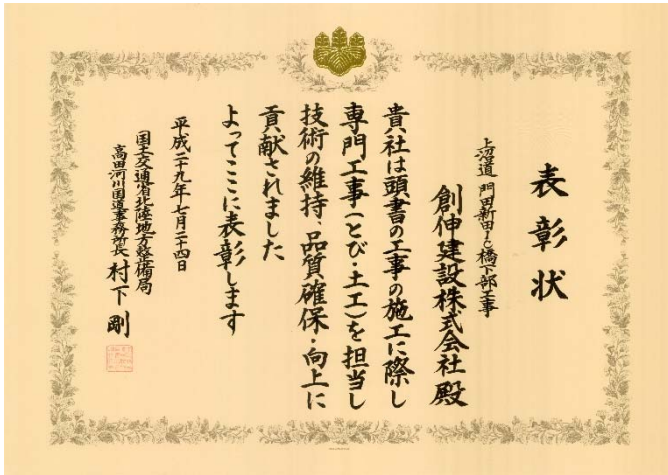 表彰状
上沼道 門田新田IC橋下部工事
創伸建設株式会社 殿
貴社は頭書の工事の施工に際し
専門工事(とび・土工)を担当し
技術の維持・品質確保・向上に
貢献されました
よってここに表彰します
平成二十九年七月二十四日
国土交通省北陸地方整備局
高田河川国道事務所長 村下 剛